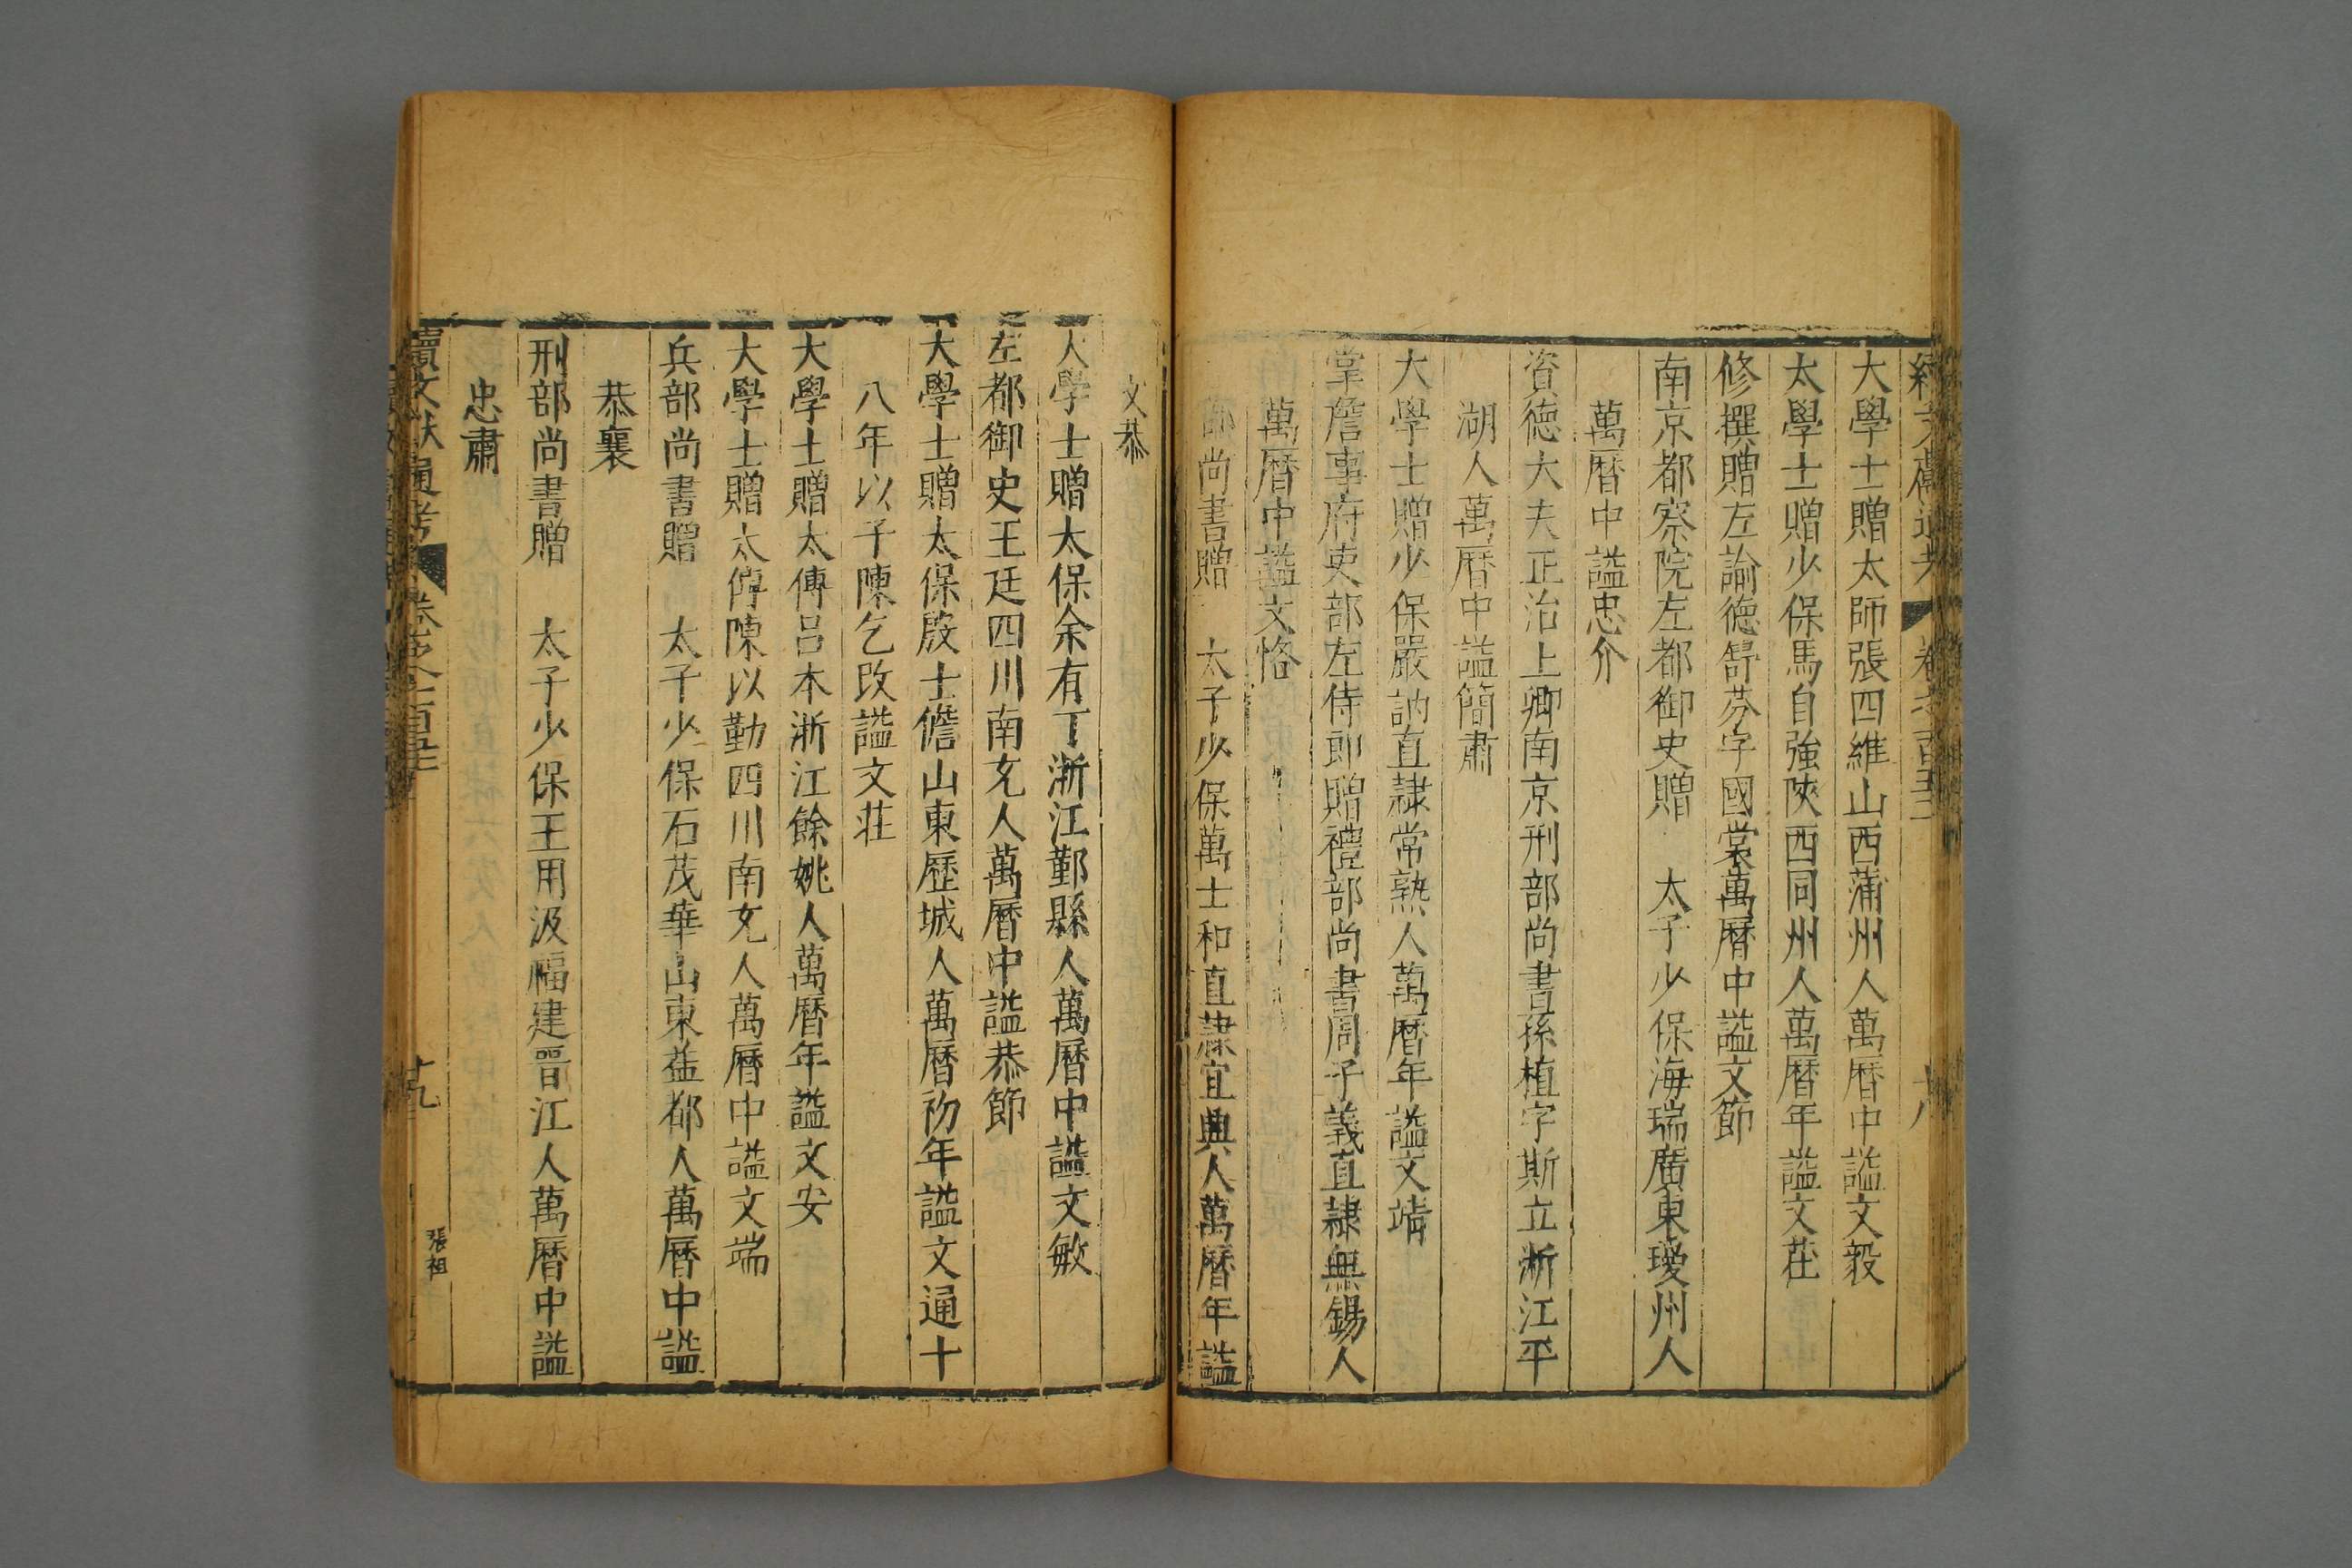 續文獻通考 卷之一百五十三 十八
大學士贈太師張四維山西蒲州人萬曆中謚文毅
太學士贈少保馬自強陝西同州人萬曆年謚文莊
修撰贈左諭德舒芬字國裳萬曆中謚文節
南京都察院左都御史贈 太子少保海瑞廣東瓊州人
萬曆中謚忠介
資德大夫正治上卿南京刑部尚書孫植字斯立浙江平
湖人萬曆中謚簡肅
大學士贈少保嚴訥直隸常熟人萬曆年謚文靖
掌詹事府吏部左侍郎贈禮部尚書周子義直隸無錫人
萬曆中謚文恪
部尚書贈 太子少保萬士和直隸宜興人萬曆年謚
文恭
大學士贈太保余有丁浙江鄞縣人萬曆中謚文敏
左都御史王廷四川南充人萬曆中謚恭節
大學士贈太保殷士儋山東歷城人萬曆初年謚文通十
八年以子陳乞改謚文莊
大學士贈太傅呂本浙江餘姚人萬曆年謚文安
大學士贈太傅陳以勤四川南充人萬曆中謚文端
兵部尚書贈 太子少保石茂華山東益都人萬曆中謚
恭襄
刑部尚書贈 太子少保王用汲福建晉江人萬曆中謚
忠肅
續文獻通考 十九
張祖